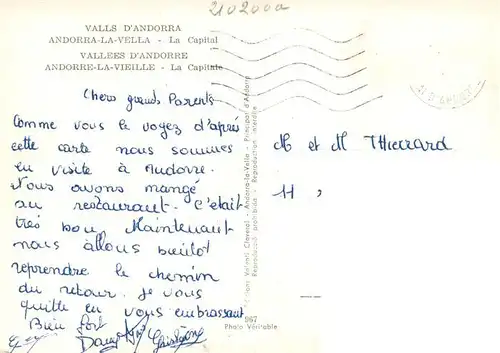 2102000
VALLS D'ANDORRA
ANDORRA-LA-VELLA - La Capital
VALLEES D'ANDORRE
ANDORRE-LA-VIEILLE - La Capitale
Chers grands Parents
Comme vous le voyez d'après
cette carte nous sommes
en visite à Andorre.
Nous avons mangé
au restaurant. C'était
très bon. Maintenant
nous allons bientôt
reprendre le chemin
du retour. Je vous
quitte en vous embrassant
Bien fort
M et M Thierrard
11,
Editions Valenti Claverol - Andorra-la-Vella - Principat d'Andorra
Reproducció prohibida - Reproduction interdite
967
Photo Véritable